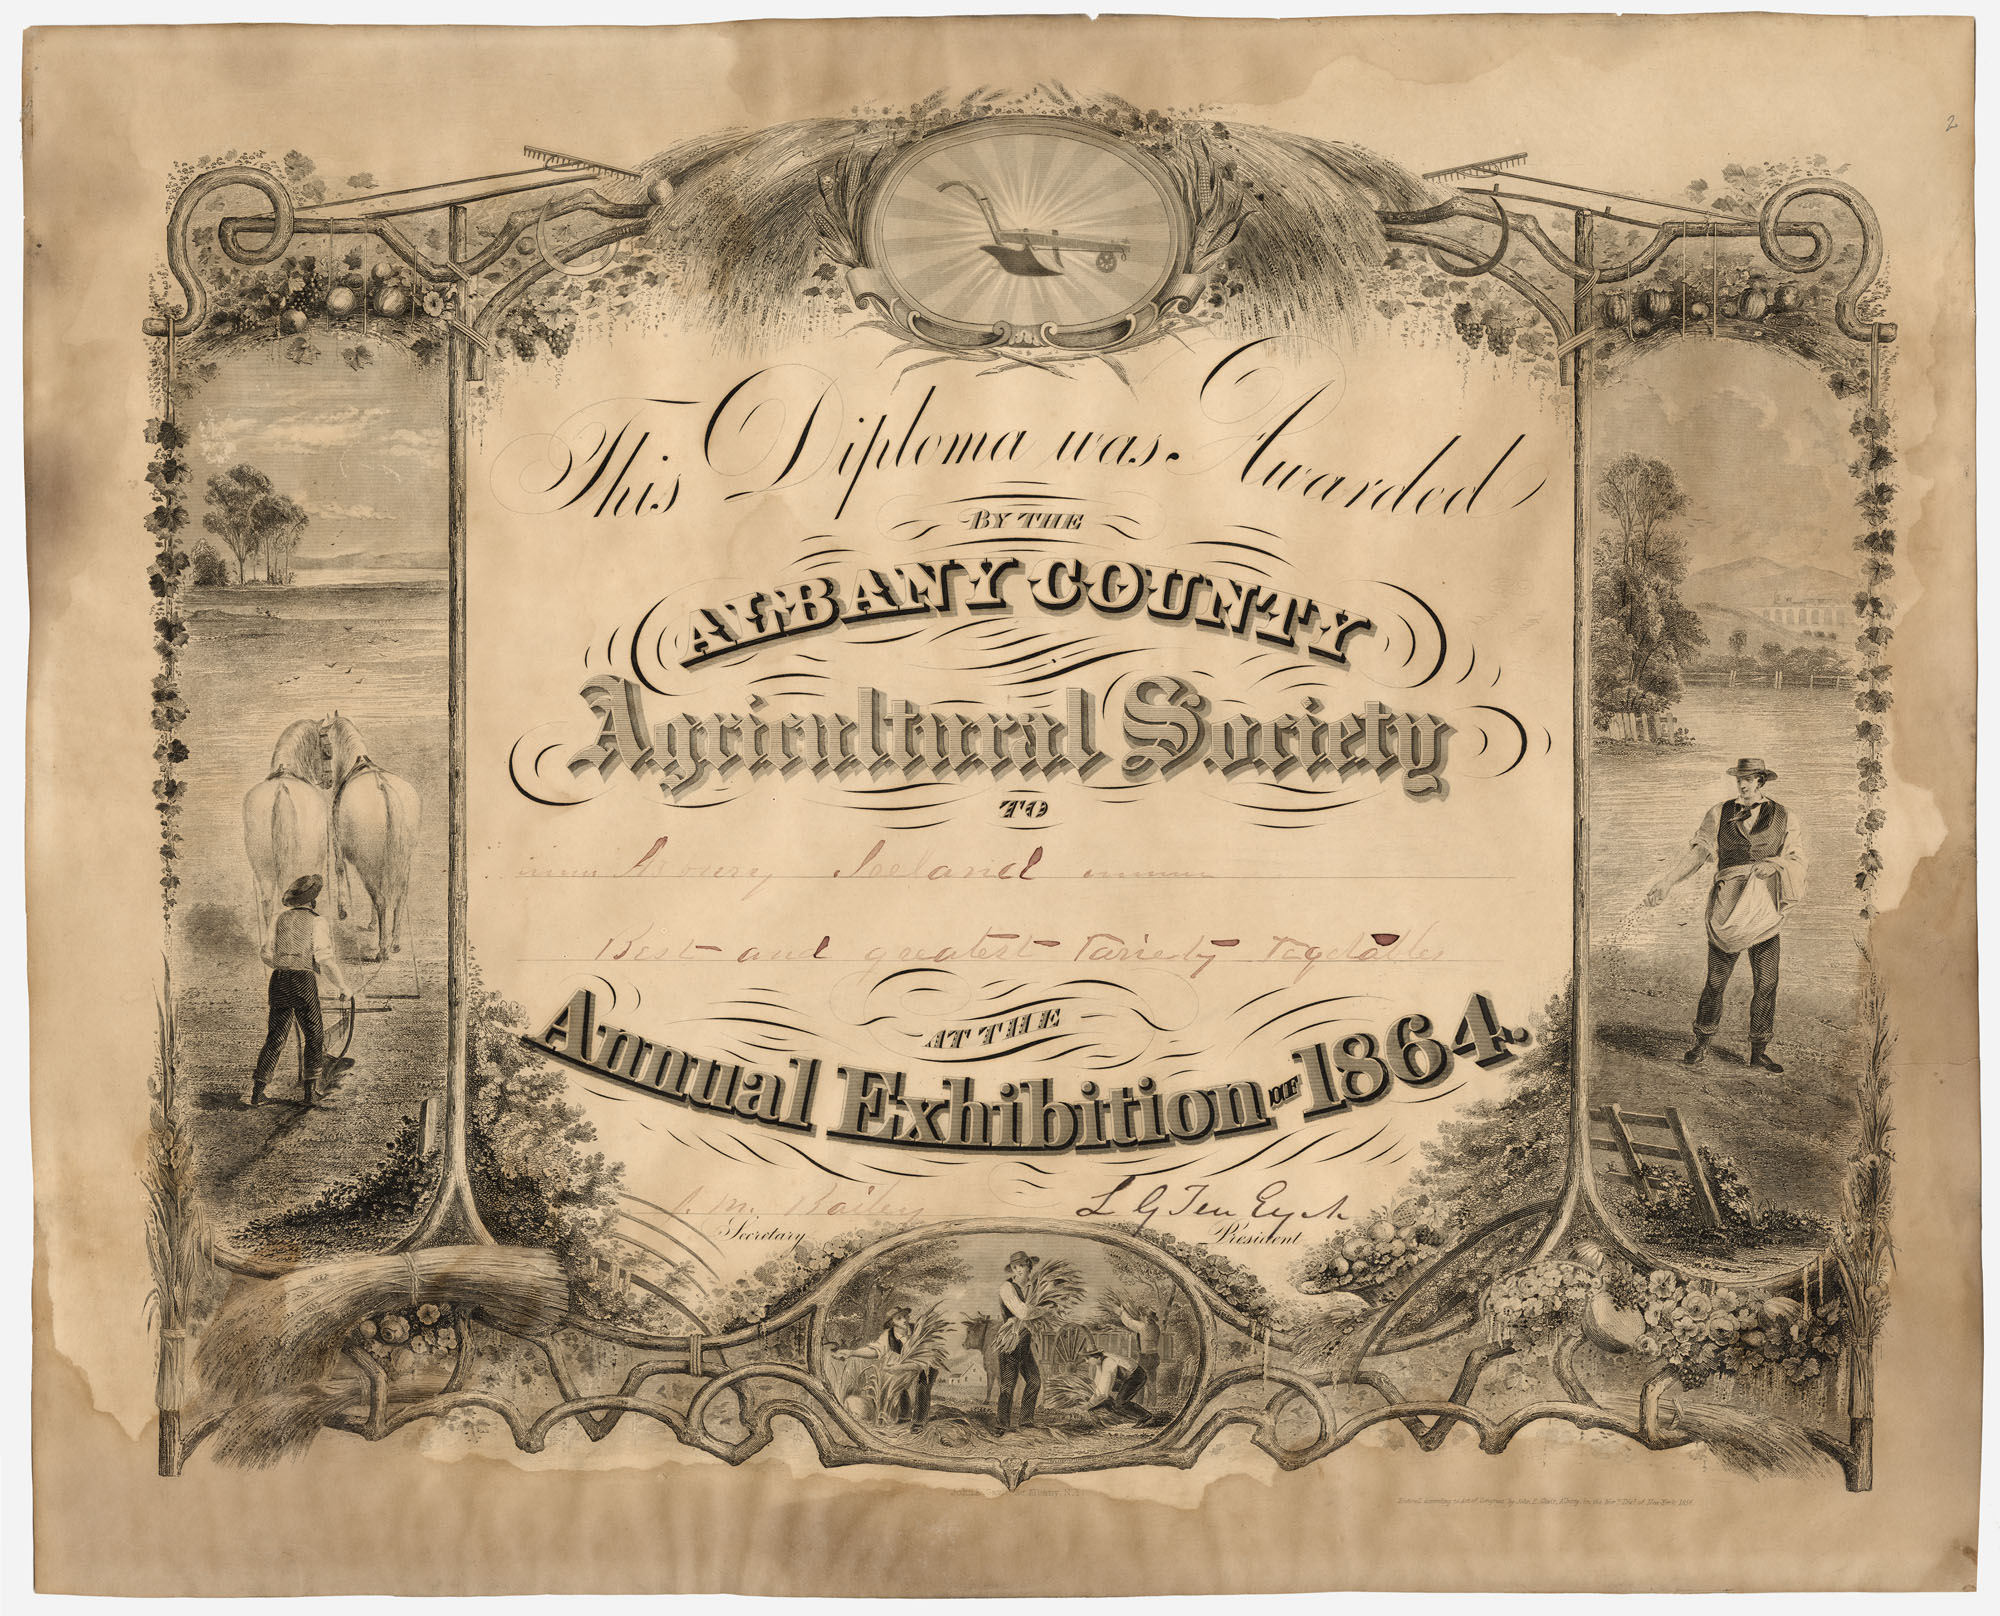 2
This Diploma was Awarded
BY THE
ALBANY COUNTY
Agricultural Society
TO
Asbury Iceland
Best and greatest Variety Vegetables
AT THE
Annual Exhibition OF 1864.
J. M. Bailey
L G Ten Eyck
Secretary
President
Albany, N.Y.
Entered according to Act of Congress by John E. Gavit, Albany, for the Nor. Dist. of New York